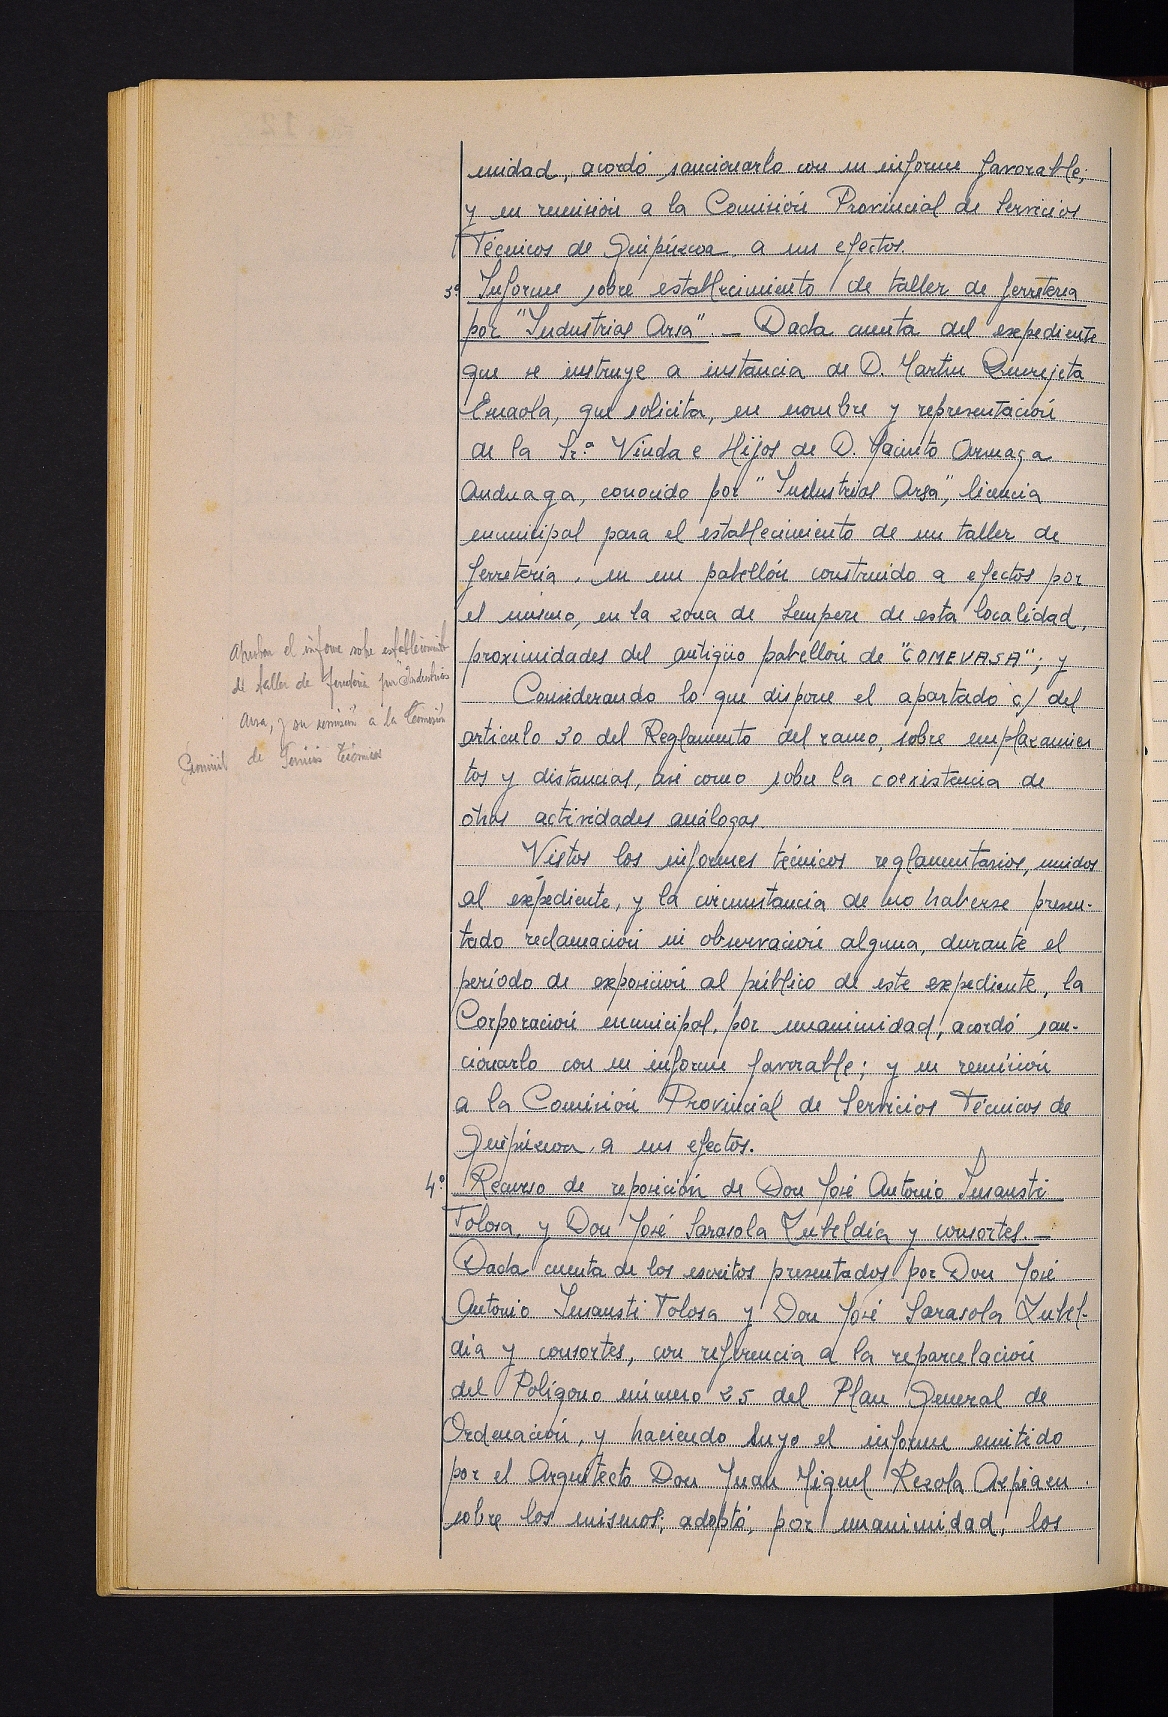 nidad, acordó sancionarlo con su informe favorable;
y su remisión a la Comisión Provincial de Servicios
Técnicos de Guipúzcoa, a sus efectos.
3º Informe sobre establecimiento de taller de ferretería
por "Industrias Arsa". — Dada cuenta del expediente
que se instruye a instancia de D. Martín Querejeta
que solicita, en nombre y representación
de la Sr.ª Viuda e Hijos de D. Jacinto
Anduaga, conocido por "Industrias Arsa", licencia
municipal para el establecimiento de un taller de
ferretería, en un pabellón construido a efectos por
el mismo, en la zona de Sempere de esta localidad,
proximidades del antigüo pabellón de "COMEVASA"; y
Considerando lo que dispone el apartado c/ del
artículo 30 del Reglamento del ramo, sobre emplazamien
tos y distancias, así como sobre la coexistencia de
otras actividades análogas.
Vistos los informes técnicos reglamentarios, unidos
al expediente, y la circunstancia de no haberse presen-
tado reclamación ni observación alguna, durante el
período de exposición al público de este expediente, la
Corporación municipal, por unanimidad, acordó san-
cionarlo con su informe favorable; y su remisión
a la Comisión Provincial de Servicios Técnicos de
Guipúzcoa, a sus efectos.
4º Recurso de reposición de Don José Antonio Insausti
Tolosa, y Don José Sarasola Zubeldía y consortes. —
Dada cuenta de los escritos presentados por Don José
Antonio Insausti Tolosa y Don José Sarasola Zubel-
día y consortes, con referencia a la reparcelación
del Polígono número 25 del Plan General de
Ordenación, y haciendo suyo el informe emitido
por el Arquitecto Don Juan Miguel Rezola Azpiazu
sobre los mismos; adoptó, por unanimidad, los
el informe sobre establecimiento
de taller de ferretería por "Industrias
Arsa, y su remisión a la Comisión
de Servicios Técnicos